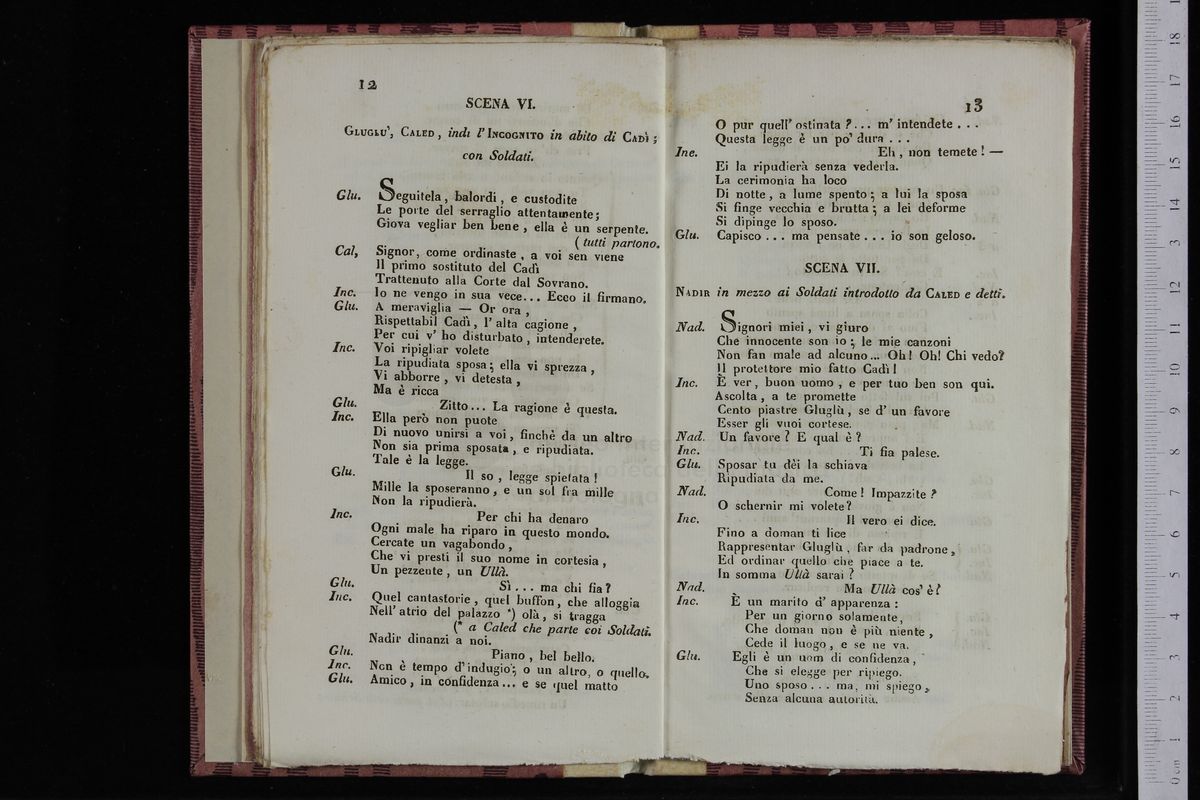 12
SCENA VI.
GLUGLU', CALED, indi l'INCOGNITO in abito di CADÌ;
con Soldati.
Glu. Seguitela, balordi, e custodite
Le porte del serraglio attentamente;
Giova vegliar ben bene, ella è un serpente.
(tutti partono.
Cal, Signor, come ordinaste, a voi sen viene
Il primo sostituto del Cadì
Trattenuto alla Corte dal Sovrano.
Inc. Io ne vengo in sua vece... Ecco il firmano.
Glu. A meraviglia — Or ora,
Rispettabil Cadì, l'alta cagione,
Per cui v'ho disturbato, intenderete.
Inc. Voi ripigliar volete
La ripudiata sposa; ella vi sprezza,
Vi abborre, vi detesta,
Ma è ricca
Glu. Zitto... La ragione è questa.
Inc. Ella però non puote
Di nuovo unirsi a voi, finchè da un altro
Non sia prima sposata, e ripudiata.
Tale è la legge.
Glu. Il so, legge spietata!
Mille la sposeranno, e un sol fra mille
Non la ripudierà.
Inc. Per chi ha denaro
Ogni male ha riparo in questo mondo.
Cercate un vagabondo,
Che vi presti il suo nome in cortesia,
Un pezzente, un Ullà.
Glu. Sì... ma chi fia?
Inc. Quel cantastorie, quel buffon, che alloggia
Nell'atrio del palazzo *) olà, si tragga
(* a Caled che parte coi Soldati.
Nadir dinanzi a noi.
Glu. Piano, bel bello.
Inc. Non è tempo d'indugio; o un altro, o quello.
Glu. Amico, in confidenza... e se quel matto
13
O pur quell'ostinata?... m'intendete...
Questa legge è un po' dura...
Ine. Eh, non temete! —
Ei la ripudierà senza vederla.
La cerimonia ha loco
Di notte, a lume spento; a lui la sposa
Si finge vecchia e brutta; a lei deforme
Si dipinge lo sposo.
Glu. Capisco... ma pensate... io son geloso.
SCENA VII.
NADIR in mezzo ai Soldati introdotto da CALED e detti.
Nad. Signori miei, vi giuro
Che innocente son io; le mie canzoni
Non fan male ad alcuno... Oh! Oh! Chi vedo?
Il protettore mio fatto Cadì!
Inc. È ver, buon uomo, e per tuo ben son qui.
Ascolta, a te promette
Cento piastre Gluglù, se d'un favore
Esser gli vuoi cortese.
Nad. Un favore? E qual è?
Inc. Ti fia palese.
Glu. Sposar tu dêi la schiava
Ripudiata da me.
Nad. Come! Impazzite?
O schernir mi volete?
Inc. Il vero ei dice.
Fino a doman ti lice
Rappresentar Gluglù, far da padrone,
Ed ordinar quello che piace a te.
In somma Ullà sarai?
Nad. Ma Ullà cos'è?
Inc. È un marito d'apparenza:
Per un giorno solamente,
Che doman non è più niente,
Cede il luogo, e se ne va.
Glu. Egli è un uom di confidenza,
Che si elegge per ripiego.
Uno sposo... ma, mi spiego,
Senza alcuna autorità.